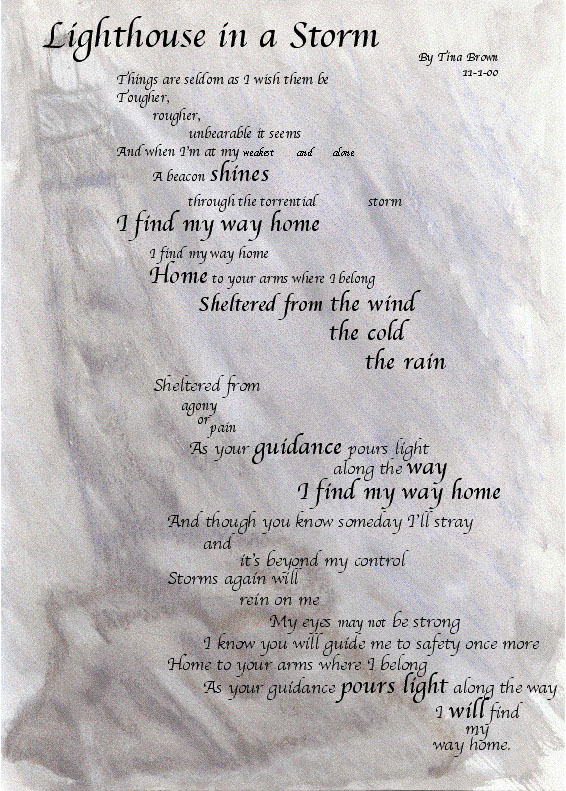 Lighthouse in a Storm
By Tina Brown
11-1-00
Things are seldom as I wish them be
Tougher,
rougher,
unbearable it seems
And when I'm at my weakest and alone
A beacon shines
through the torrential storm
I find my way home
I find my way home
Home to your arms where I belong
Sheltered from the wind
the cold
the rain
Sheltered from
agony
or
pain
As your guidance pours light
along the way
I find my way home
And though you know someday I'll stray
and
it's beyond my control
Storms again will
rein on me
My eyes may not be strong
I know you will guide me to safety once more
Home to your arms where I belong
As your guidance pours light along the way
I will find
my
way home.